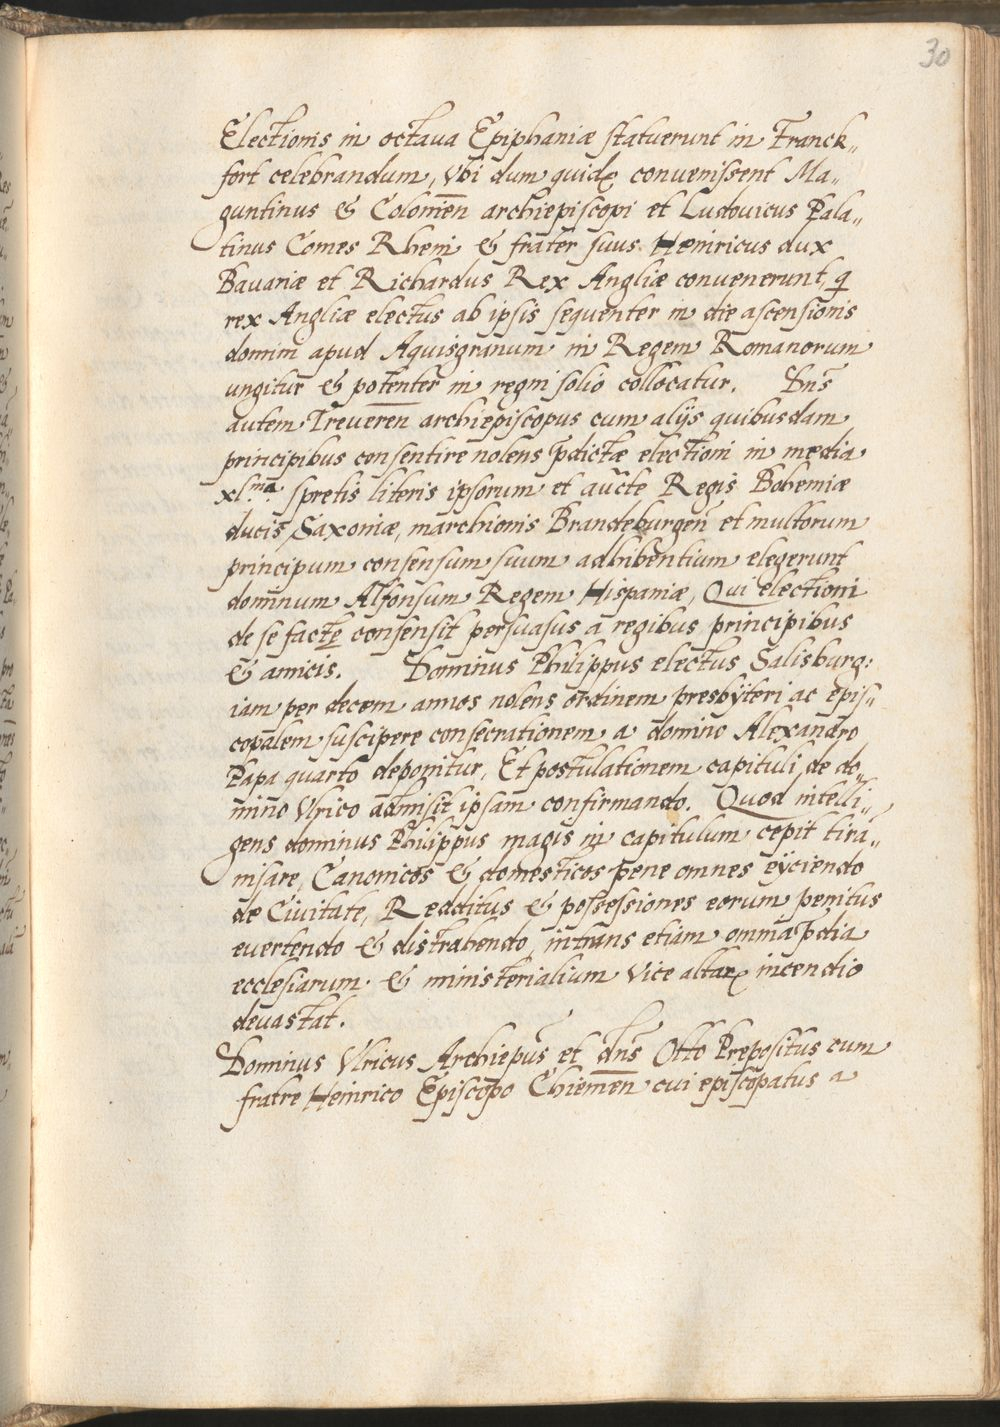 30
Electionis in octaua Epiphaniæ statuerunt in Franck„
fort celebrandum, Vbi dum quidẽ convenissent Ma„
guntinus & Coloniẽn archiepiscopi et Ludouicus Pala„
tinus Comes Rheni & frater suus Heinricus dux
Bauariæ et Richardus Rex Angliæ convenerunt, q̃
rex Angliæ electus ab ipsis sequenter in die ascensionis
domini apud Aquisgranum in Regem Romanorum
ungitur & potenter in regni solio collocatur. Dñs
autem Treuereñ archiepiscopus cum alijs quibusdam
principibus consentire nolens p̃dictæ electioni in media
xl.ma spretis literis ipsorum et aũcte Regis Bohemiæ
ducis Saxoniæ, marchionis Brandeburgeñ et multorum
principum consensum suum adhibentium elegerunt
dominum Alfonsum Regem Hispaniæ, Qui electioni
de se factę consensit persuasus a regibus principibus
& amicis. Dominus Philippus electus Salisburg:
iam per decem annos nolens ordinem presbÿteri ac epis„
copalem suscipere consecrationem a domino Alexandro
Papa quarto deponitur, Et postulationem capituli de do„
mino Vlrico admisit ipsam confirmando. Quod intelli„
gens dominus Philippus magis in capitulum cepit tira„
nisare, Canonicos & domesticos pene omnes eÿciendo
de Ciuitate, Redditus & possessiones eorum penitus
euertendo & distrahendo, intrans etiam omnia p̃dia
ecclesiarum. & ministerialium vice altarẽ incendio
deuastat.
Dominus Vlricus Archiepũs et dñs Otto Prepositus cum
fratre Heinrico Episcopo Chiemẽn cui episcopatus a